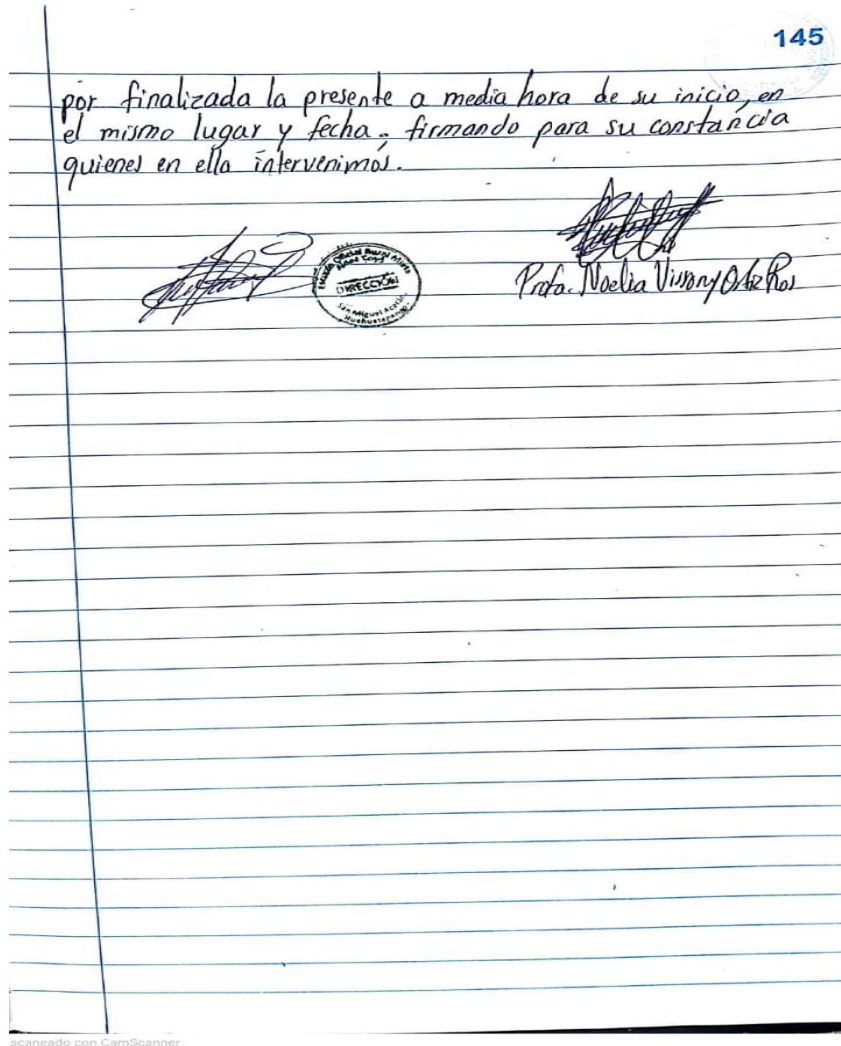 145
por finalizada la presente a media hora de su inicio, en
el mismo lugar y fecha.- firmando para su constancia
quienes en ella intervenimos.
Oficial Rural Mixta
DIRECCIÓN
San Miguel Acatán
Huehuetenango
Profa. Noelia Ortiz
scaneado con CamScanner